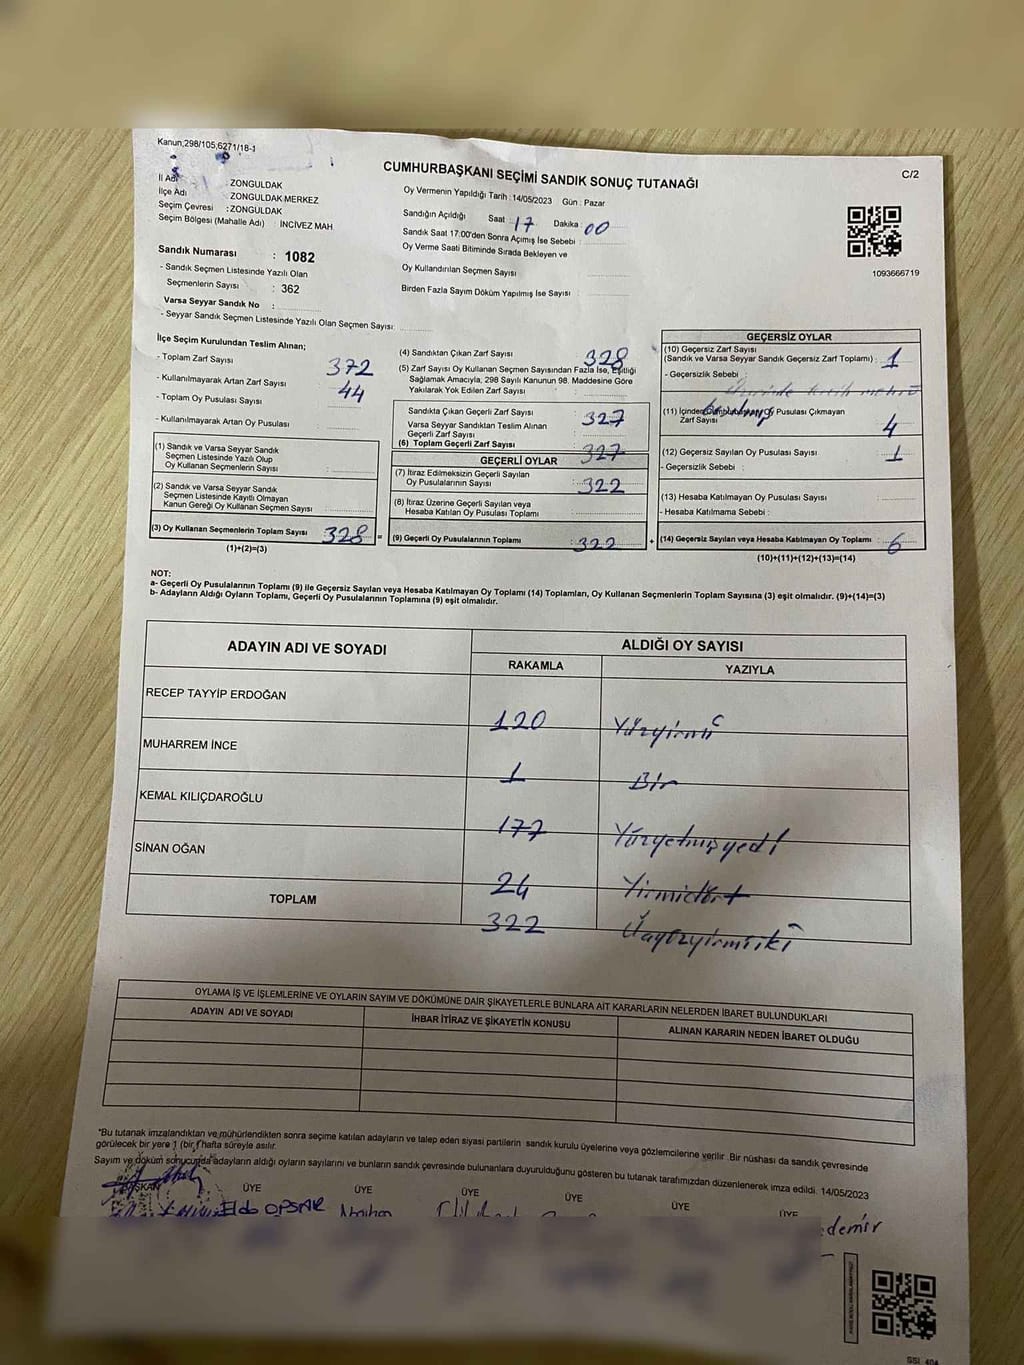 Kanun,298/105,6271/18-1
CUMHURBAŞKANI SEÇİMİ SANDIK SONUÇ TUTANAĞI
C/2
İl Adı : ZONGULDAK
İlçe Adı : ZONGULDAK MERKEZ
Seçim Çevresi : ZONGULDAK
Seçim Bölgesi (Mahalle Adı) İNCİVEZ MAH
Sandık Numarası : 1082
- Sandık Seçmen Listesinde Yazılı Olan
Seçmenlerin Sayısı : 362
Varsa Seyyar Sandık No :
- Seyyar Sandık Seçmen Listesinde Yazılı Olan Seçmen Sayısı:
Oy Vermenin Yapıldığı Tarih : 14/05/2023 Gün : Pazar
Sandığın Açıldığı Saat : 17 Dakika : 00
Sandık Saat 17:00'den Sonra Açımış İse Sebebi :
Oy Verme Saati Bitiminde Sırada Bekleyen ve
Oy Kullandırılan Seçmen Sayısı
Birden Fazla Sayım Döküm Yapılmış İse Sayısı :
1093666719
İlçe Seçim Kurulundan Teslim Alınan;
- Toplam Zarf Sayısı 372
- Kullanılmayarak Artan Zarf Sayısı 44
- Toplam Oy Pusulası Sayısı
- Kullanılmayarak Artan Oy Pusulası
(1) Sandık ve Varsa Seyyar Sandık
Seçmen Listesinde Yazılı Olup
Oy Kullanan Seçmenlerin Sayısı
(2) Sandık ve Varsa Seyyar Sandık
Seçmen Listesinde Kayıtlı Olmayan
Kanun Gereği Oy Kullanan Seçmen Sayısı
(3) Oy Kullanan Seçmenlerin Toplam Sayısı 328 =
(1)+(2)=(3)
(4) Sandıktan Çıkan Zarf Sayısı 328
(5) Zarf Sayısı Oy Kullanan Seçmen Sayısından Fazla İse, Eşitliği
Sağlamak Amacıyla, 298 Sayılı Kanunun 98. Maddesine Göre
Yakılarak Yok Edilen Zarf Sayısı :
Sandıkta Çıkan Geçerli Zarf Sayısı 327
Varsa Seyyar Sandıktan Teslim Alınan
Geçerli Zarf Sayısı
(6) Toplam Geçerli Zarf Sayısı 327
GEÇERLİ OYLAR
(7) İtiraz Edilmeksizin Geçerli Sayılan
Oy Pusulalarının Sayısı : 322
(8) İtiraz Üzerine Geçerli Sayılan veya
Hesaba Katılan Oy Pusulası Toplamı
(9) Geçerli Oy Pusulalarının Toplamı 322 +
GEÇERSİZ OYLAR
(10) Geçersiz Zarf Sayısı
(Sandık ve Varsa Seyyar Sandık Geçersiz Zarf Toplamı) : 1
- Geçersizlik Sebebi :
(11) İçinden Oy Pusulası Çıkmayan
Zarf Sayısı 4
(12) Geçersiz Sayılan Oy Pusulası Sayısı 1
- Geçersizlik Sebebi :
(13) Hesaba Katılmayan Oy Pusulası Sayısı
- Hesaba Katılmama Sebebi :
(14) Geçersiz Sayılan veya Hesaba Katılmayan Oy Toplamı : 6
(10)+(11)+(12)+(13)=(14)
NOT:
a- Geçerli Oy Pusulalarının Toplamı (9) ile Geçersiz Sayılan veya Hesaba Katılmayan Oy Toplamı (14) Toplamları, Oy Kullanan Seçmenlerin Toplam Sayısına (3) eşit olmalıdır. (9)+(14)=(3)
b- Adayların Aldığı Oyların Toplamı, Geçerli Oy Pusulalarının Toplamına (9) eşit olmalıdır.
ADAYIN ADI VE SOYADI
ALDIĞI OY SAYISI
RAKAMLA YAZIYLA
RECEP TAYYİP ERDOĞAN 120 Yüzyirmi
MUHARREM İNCE 1 Bir
KEMAL KILIÇDAROĞLU 177 Yüzyetmişyedi
SİNAN OĞAN 24 Yirmidört
TOPLAM 322 Üçyüzyirmiiki
OYLAMA İŞ VE İŞLEMLERİNE VE OYLARIN SAYIM VE DÖKÜMÜNE DAİR ŞİKAYETLERLE BUNLARA AİT KARARLARIN NELERDEN İBARET BULUNDUKLARI
ADAYIN ADI VE SOYADI İHBAR İTİRAZ VE ŞİKAYETİN KONUSU ALINAN KARARIN NEDEN İBARET OLDUĞU
*Bu tutanak imzalandıktan ve mühürlendikten sonra seçime katılan adayların ve talep eden siyasi partilerin sandık kurulu üyelerine veya gözlemcilerine verilir .Bir nüshası da sandık çevresinde
görülecek bir yere 1 (bir) hafta süreyle asılır.
Sayım ve döküm sonucunda adayların aldığı oyların sayılarını ve bunların sandık çevresinde bulunanlara duyurulduğunu gösteren bu tutanak tarafımızdan düzenlenerek imza edildi. 14/05/2023
BAŞKAN ÜYE ÜYE ÜYE ÜYE ÜYE ÜYE